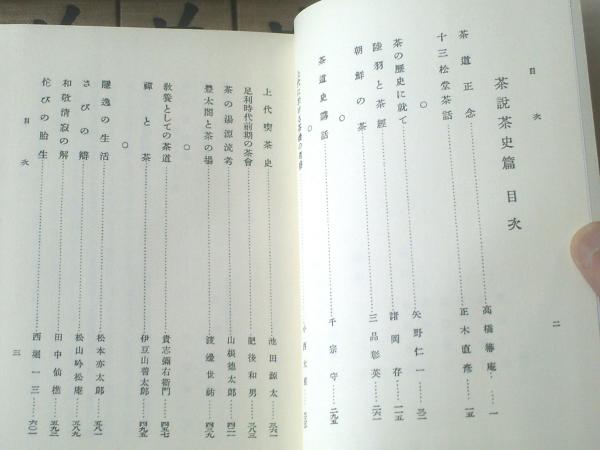 目次
茶說茶史篇 目次
茶道正念……高橋箒庵…一
十三松堂茶話……正木直彦…一五
○
茶の歷史に就て……矢野仁一…三一
陸羽と茶經……諸岡存…一一五
朝鮮の茶……三品彰英…二六一
○
茶道史講話……千宗守…二九五
○
二
上代喫茶史……池田源太…三六一
足利時代前期の茶會……肥後和男…三八三
茶の湯源流考……山根德太郎…四二一
豊太閤と茶の湯……渡邊世祐…四三九
○
敎養としての茶道……貴志彌右衞門…四五七
禪と茶……伊豆山善太郎…四九五
○
隱逸の生活……松本亦太郎…五八一
さびの辯……松山吟松庵…五八九
和敬淸寂の解……田中仙樵…五九三
侘びの胎生……西堀一三…六〇一
目次
三